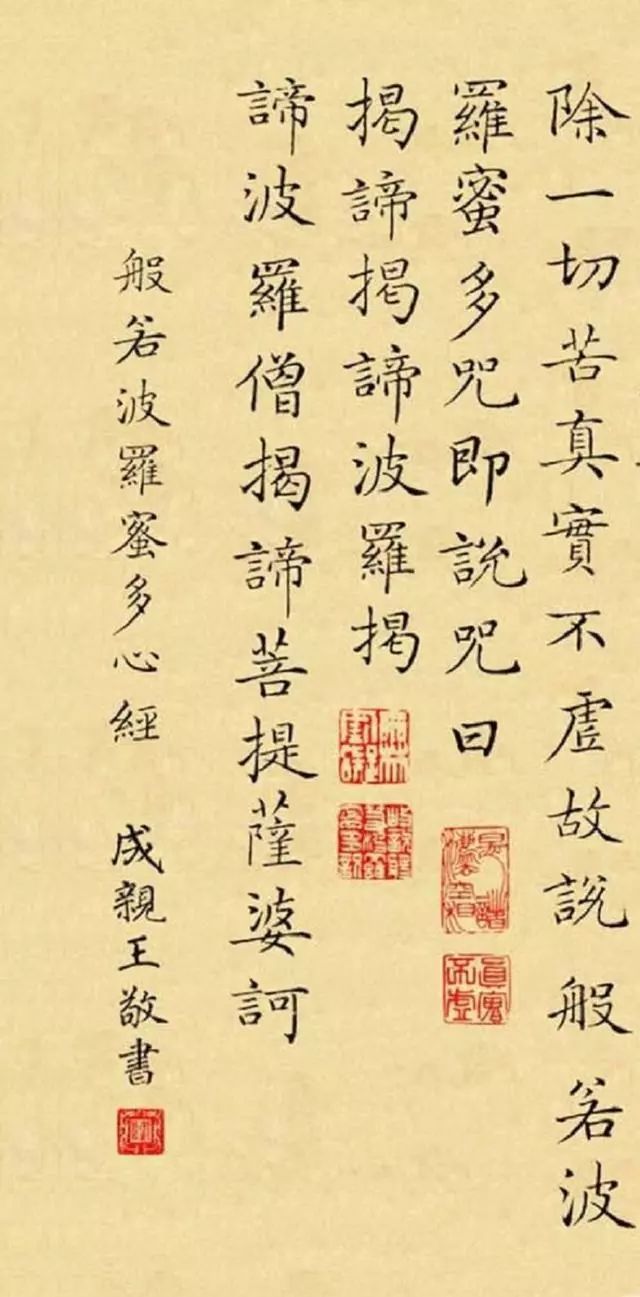 除一切苦真實不虛故說般若波
羅蜜多咒即說咒曰
是諸法空相
真實不虛
揭諦揭諦波羅揭
諦波羅僧揭諦菩提薩婆訶
般若波羅蜜多心經 成親王敬書